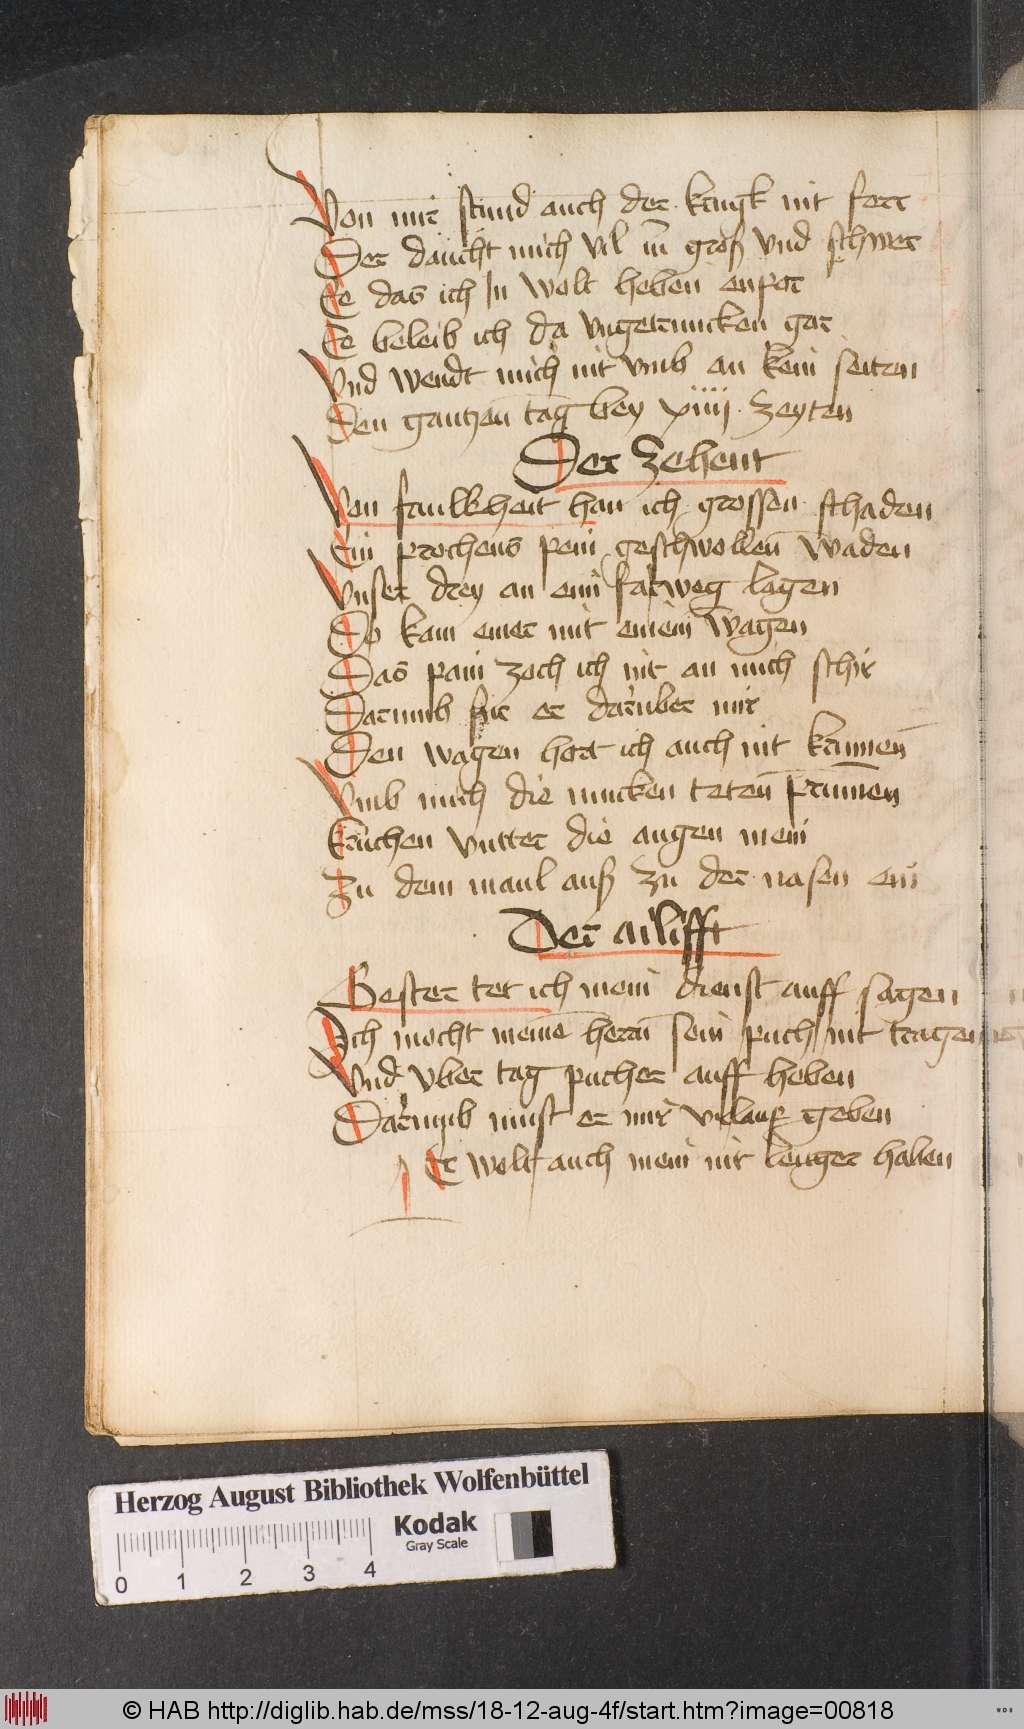 Von mir stund auch der krugk nit ferr
Der daucht mich vil zu groß vnd schwer
Ee das ich In wolt heben enpor
Ee beleib ich da vngetruncken gar
Vnd wendt mich nit vmb an kein seitten
Den gantzen tag bey xiiii zeyten
Der zehent
Von faulkheit han ich grossen schaden
Ein prochens pein geschwollen waden
Vnser drey an eim farweg lagen
Do kam einer mit einem wagen
Das pain zoch ich nit an mich schir
Darumb fur er daruber mir
Den wagen hort ich auch nit krimen
Vmb mich die mucken teten prumen
Kruchen vntter die augen mein
Zu dem maul auß zu der nasen ein
Der ailifft
Gester tet ich mein dienst auff sagen
Ich mocht meine herrn sein puch nit tragen
Vnd vber tag pucher auff heben
Darumb must er mir vrlaup geben
Er wolt auch mein nit lenger haben
Herzog August Bibliothek Wolfenbüttel
Kodak
Gray Scale
0 1 2 3 4
© HAB http://diglib.hab.de/mss/18-12-aug-4f/start.htm?image=00818